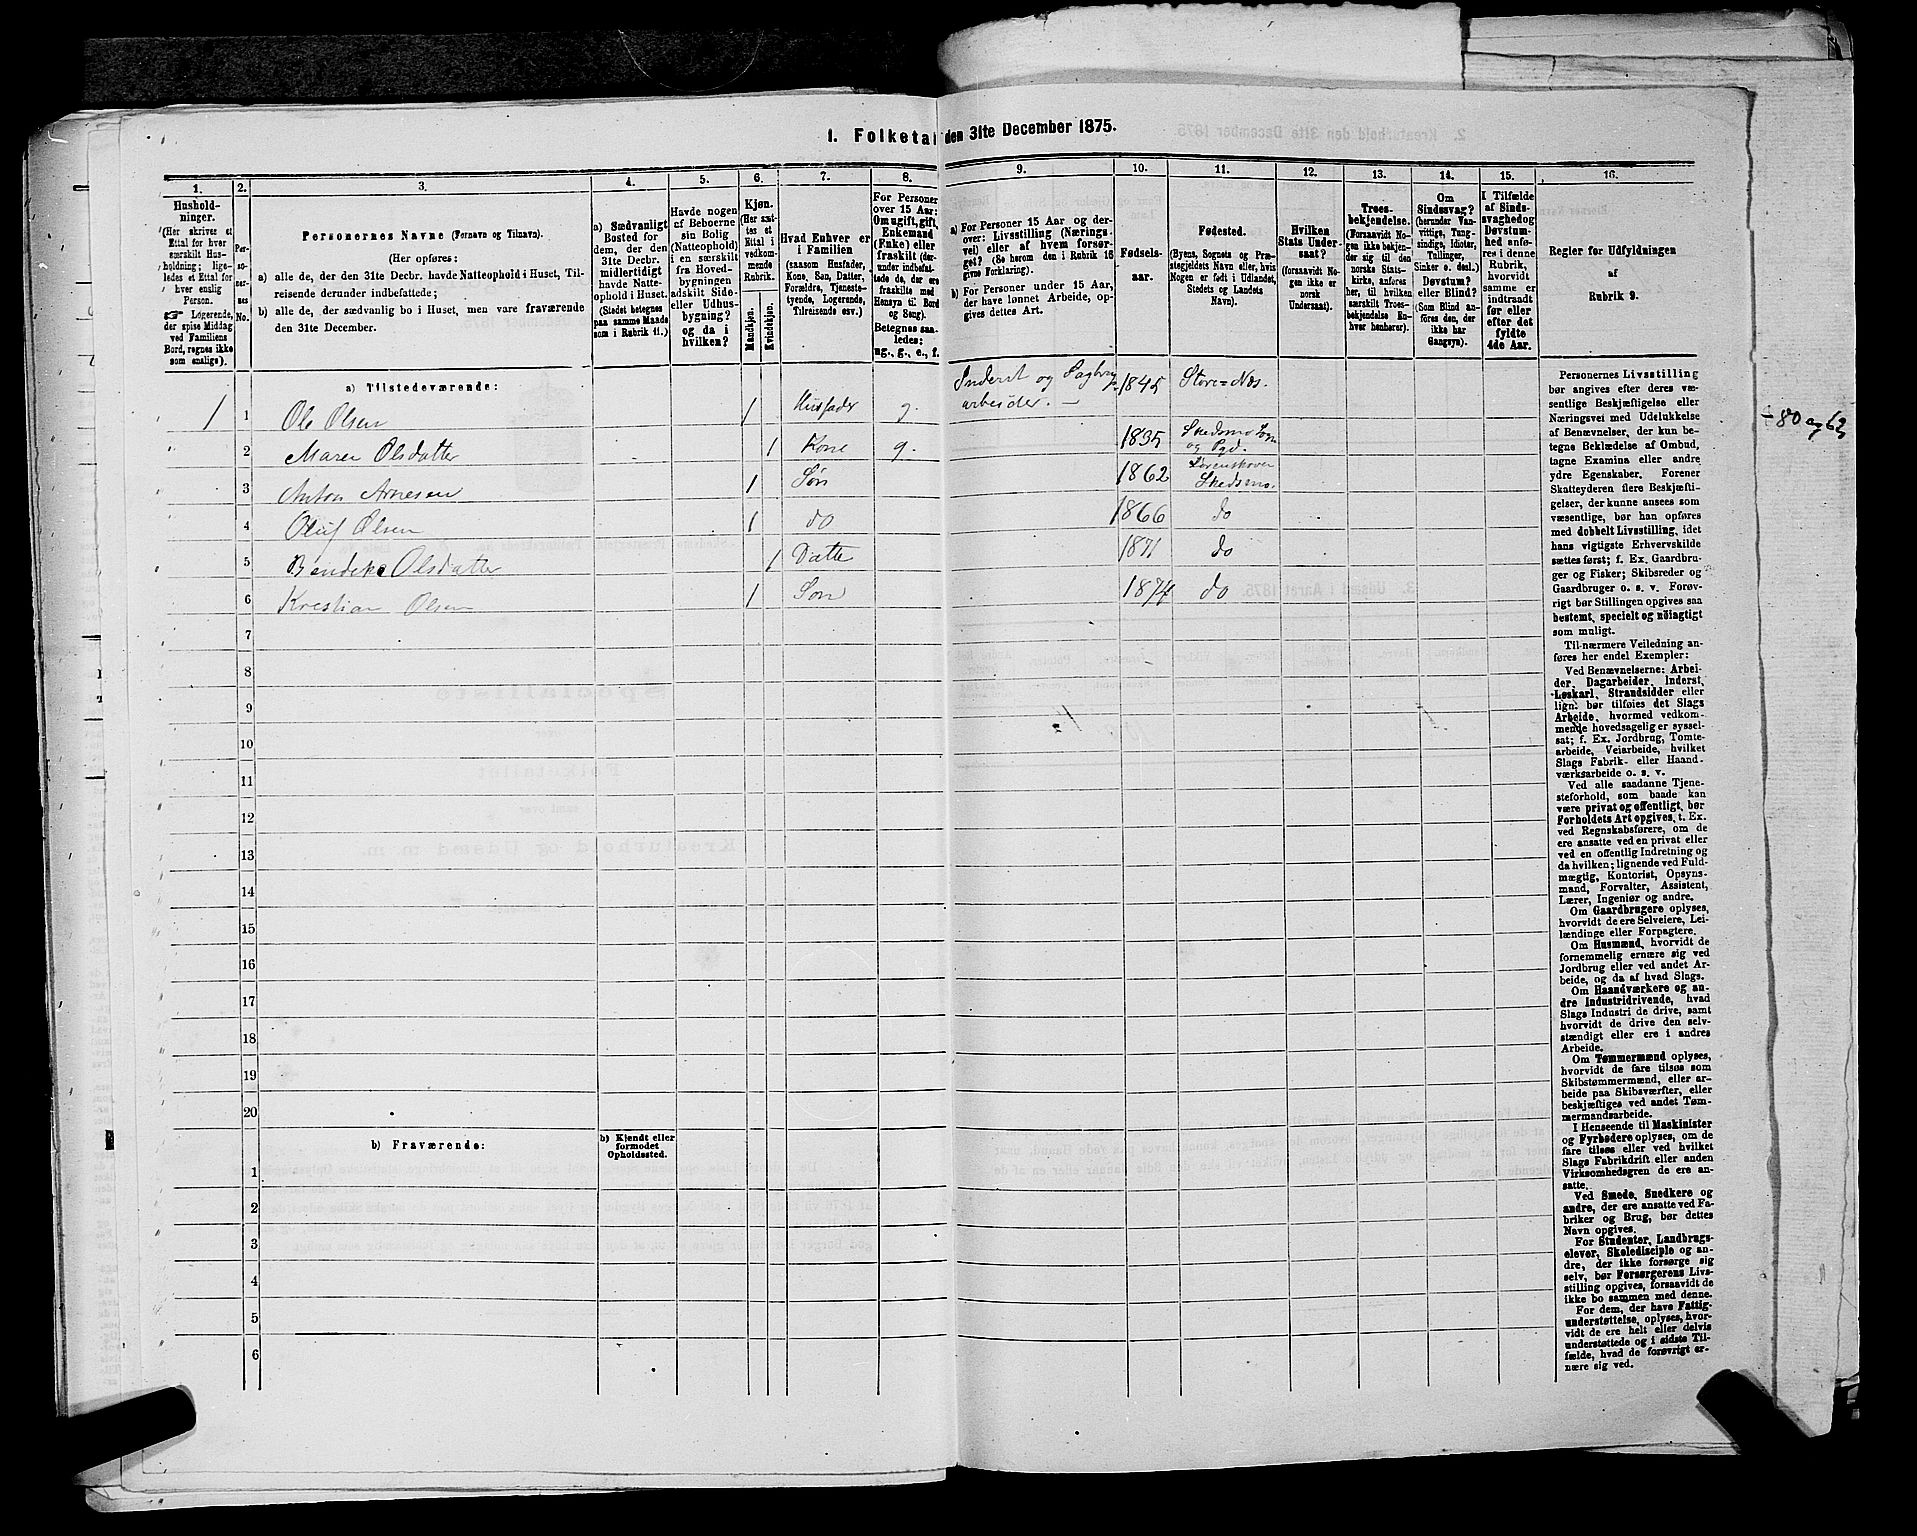 1. Folketal den 31te December 1875.
1. 2. 3. 4. 5. 6. 7. 8. 9. 10. 11. 12. 13. 14. 15. 16.
Hushold-
ninger.
(Her skrives et
Ettal for hver
særskilt Hus-
holdning; lige-
ledes et Ettal for
hver enslig
Person.
☞ Logerende,
der spise Middag
ved Familiens
Bord, regnes ikke
som enslige).
Per-
so-
ner-
nes
No.
Personernes Navne (Fornavn og Tilnavn).
(Her opføres:
a) alle de, der den 31te Decbr. havde Natteophold i Huset, Til-
reisende derunder indbefattede;
b) alle de, der sædvanlig bo i Huset, men vare fraværende
den 31te December.
a) Sædvanligt
Bosted for
dem, der den
31te Decbr.
midlertidigt
havde Natte-
ophold i Huset.
(Stedet betegnes
paa samme Maade
som i Rubrik 11.)
Havde nogen
af Beboerne
sin Bolig
(Natteophold)
i en særskilt
fra Hoved-
bygningen
adskilt Side-
eller Udhus-
bygning?
og da i
hvilken?
Kjøn.
(Her sæt-
tes et
Ettal i
vedkom-
mende
Rubrik.
Mandkjøn.
Kvindekjøn.
Hvad Enhver er
i Familien
(saasom Husfader,
Kone, Søn, Datter,
Forældre, Tjeneste-
tyende, Logerende,
Tilreisende osv.)
For Personer
over 15 Aar:
Om ugift, gift,
Enkemand
(Enke) eller
fraskilt (der-
under indbefat-
tede de, der ere
fraskilte med
Hensyn til Bord
og Seng).
Betegnes saa-
ledes:
ug., g., e., f.
a) For Personer 15 Aar og der-
over: Livsstilling (Nærings-
vei) eller af hvem forsør-
get? (Se herom den i Rubrik 16
givne Forklaring).
b) For Personer under 15 Aar,
der have lønnet Arbeide, op-
gives dettes Art.
Fødsels-
aar.
Fødested.
(Byens, Sognets og Præ-
stegjeldets Navn eller, hvis
Nogen er født i Udlandet,
Stedets og Landets
Navn).
Hvilken
Stats Under-
saat?
(forsaavidt No-
gen ikke er
norsk
Undersaat).
Troes-
bekjendelse.
(Forsaavidt No-
gen ikke bekjen-
der sig til den
norske Stats-
kirke, anføres
her, til hvilken
særskilt Troes-
bekjendelse En-
hver henhører).
Om
Sindssvag?
(herunder Van-
vittige, Tung-
sindige, Idioter,
Tullinger,
Sinker o. desl.)
Døvstum?
eller Blind?
(Som Blind an-
føres den, der
ikke har
Gangsyn).
I Tilfælde
af Sinds-
svaghed og
Døvstum-
hed anfø-
res i denne
Rubrik,
hvorvidt
samme er
indtraadt
før eller
efter det
fyldte
4de Aar.
Regler for Udfyldningen
af
Rubrik 9.
a) Tilstedeværende:
1 1 Ole Olsen 1 Husfader g. Inderst og Sagbrugs-
arbeider. — 1845 Store=Næs.
" 2 Maren Olsdatter 1 Kone g. 1835 Skedsmo Sogn
og Pgd.
" 3 Anton Arnesen 1 Søn 1862 Lørenskoven
Skedsmo.
4 Oluf Olsen 1 do 1866 do
5 Bendike Olsdatter 1 Datter 1871 do
6 Kristian Olsen 1 Søn 1874 do
7
8
9
10
11
12
13
14
15
16
17
18
19
20
b) Fraværende:
b) Kjendt eller
formodet
Opholdssted.
1
2
3
4
5
6
Personernes Livsstilling
bør angives efter deres væ-
sentlige Beskjæftigelse eller
Næringsvei med Udelukkelse
af Benævnelser, der kun be-
tegne Beklædelse af Ombud,
tagne Examina eller andre
ydre Egenskaber. Forener
Skatteyderen flere Beskjæfti-
gelser, der kunne ansees som
væsentlige, bør han opføres
med dobbelt Livsstilling, idet
hans vigtigste Erhvervskilde
sættes først; f. Ex. Gaardbru-
ger og Fisker; Skibsreder og
Gaardbruger o. s. v. Forøv-
rigt bør Stillingen opgives saa
bestemt, specielt og nøiagtigt
som muligt.
Til nærmere Veiledning an-
føres her endel Exempler:
Ved Benævnelserne: Arbei-
der, Dagarbeider, Inderst,
Løskarl, Strandsidder eller
lign. bør tilføies det Slags
Arbeide, hvormed vedkom-
mende hovedsagelig er syssel-
sat; f. Ex. Jordbrug, Tomte-
arbeide, Veiarbeide, hvilket
Slags Fabrik- eller Haand-
værksarbeide o. s. v.
Ved alle saadanne Tjene-
steforhold, som baade kan
være privat og offentligt, bør
Forholdets Art opgives, t. Ex.
ved Regnskabsførere, om de
ere ansatte ved en privat eller
ved en offentlig Indretning og
da hvilken; lignende ved Fuld-
mægtig, Kontorist, Opsyns-
mand, Forvalter, Assistent,
Lærer, Ingeniør og andre.
Om Gaardbrugere oplyses,
hvorvidt de ere Selveiere, Lei-
lændinge eller Forpagtere.
Om Husmænd, hvorvidt de
fornemmelig ernære sig ved
Jordbrug eller ved andet Ar-
beide, og da af hvad Slags.
Om Haandværkere og an-
dre Industridrivende, hvad
Slags Industri de drive, samt
hvorvidt de drive den selv-
stændigt eller ere i andres
Arbeide.
Om Tømmermænd oplyses,
hvorvidt de fare tilsøs som
Skibstømmermænd, eller ar-
beide paa Skibsværfter, eller
beskjæftiges ved andet Tøm-
mermandsarbeide.
I Henseende til Maskinister
og Fyrbødere oplyses, om de
fare tilsøs eller ved hvilket
Slags Fabrikdrift eller anden
Virksomhedsgren de ere an-
satte.
Ved Smede, Snedkere og
andre, der ere ansatte ved Fa-
briker og Brug, bør dettes
Navn opgives.
For Studenter, Landbrugs-
elever, Skoledisciple og an-
dre, der ikke forsørge sig
selv, bør Forsørgerens Livs-
stilling opgives, forsaavidt de
ikke bo sammen med denne.
For dem, der have Fattig-
understøttelse, oplyses, hvor-
vidt de ere helt eller delvis
understøttede og i sidste Til-
fælde, hvad de forøvrigt er-
nære sig ved.
80 og 62